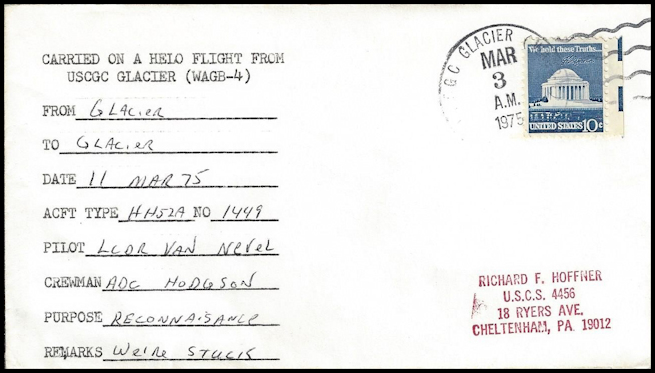 CARRIED ON A HELO FLIGHT FROM
USCGC GLACIER (WAGB-4)
FROM GLACier
TO GLACier
DATE 11 MAR 75
ACFT TYPE HH52A NO 1449
PILOT LCDR VAN NeVeL
CREWMAN ADC HODGSON
PURPOSE RECONNAiSANCe
REMARKS WeiRe STUCK
GC GLACIER
MAR
3
A.M.
1975
We hold these Truths...
UNITED STATES 10c
RICHARD F. HOFFNER
U.S.C.S. 4456
18 RYERS AVE.
CHELTENHAM, PA 19012